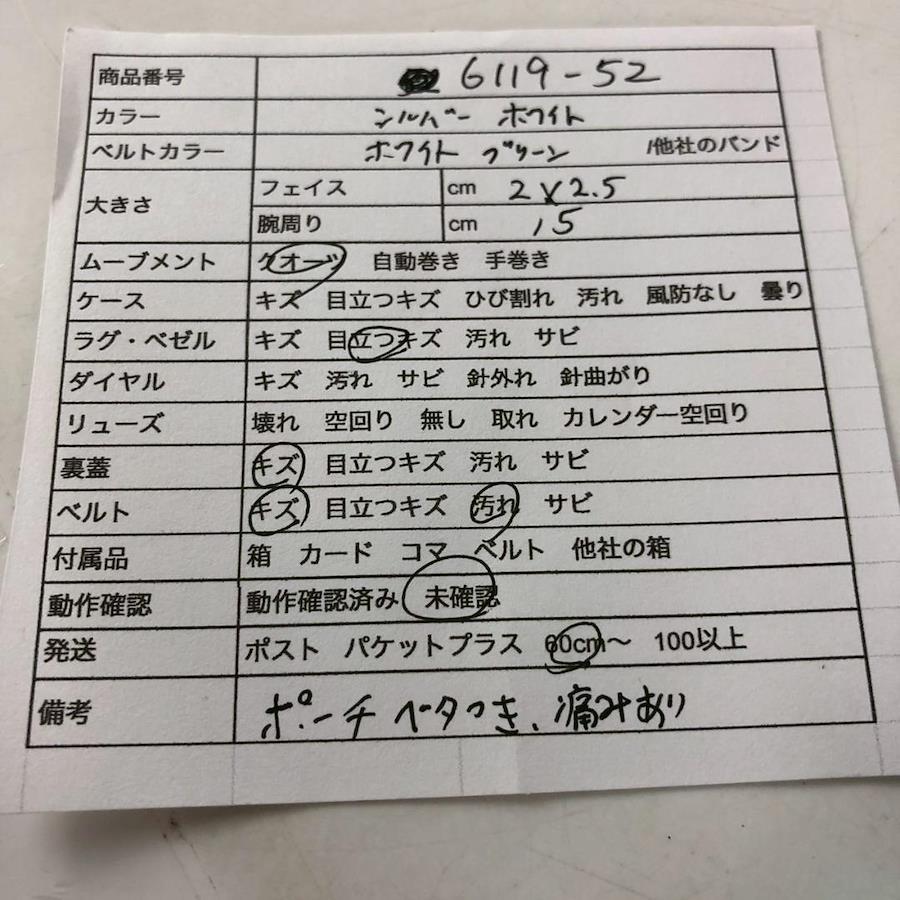 商品番号 6119-52
カラー シルバー ホワイト
ベルトカラー ホワイト グリーン /他社のバンド
大きさ フェイス cm 2×2.5
腕周り cm 15
ムーブメント クオーツ 自動巻き 手巻き
ケース キズ 目立つキズ ひび割れ 汚れ 風防なし 曇り
ラグ・ベゼル キズ 目立つキズ 汚れ サビ
ダイヤル キズ 汚れ サビ 針外れ 針曲がり
リューズ 壊れ 空回り 無し 取れ カレンダー空回り
裏蓋 キズ 目立つキズ 汚れ サビ
ベルト キズ 目立つキズ 汚れ サビ
付属品 箱 カード コマ ベルト 他社の箱
動作確認 動作確認済み 未確認
発送 ポスト パケットプラス 60cm～ 100以上
備考 ポーチ ベタつき、痛みあり